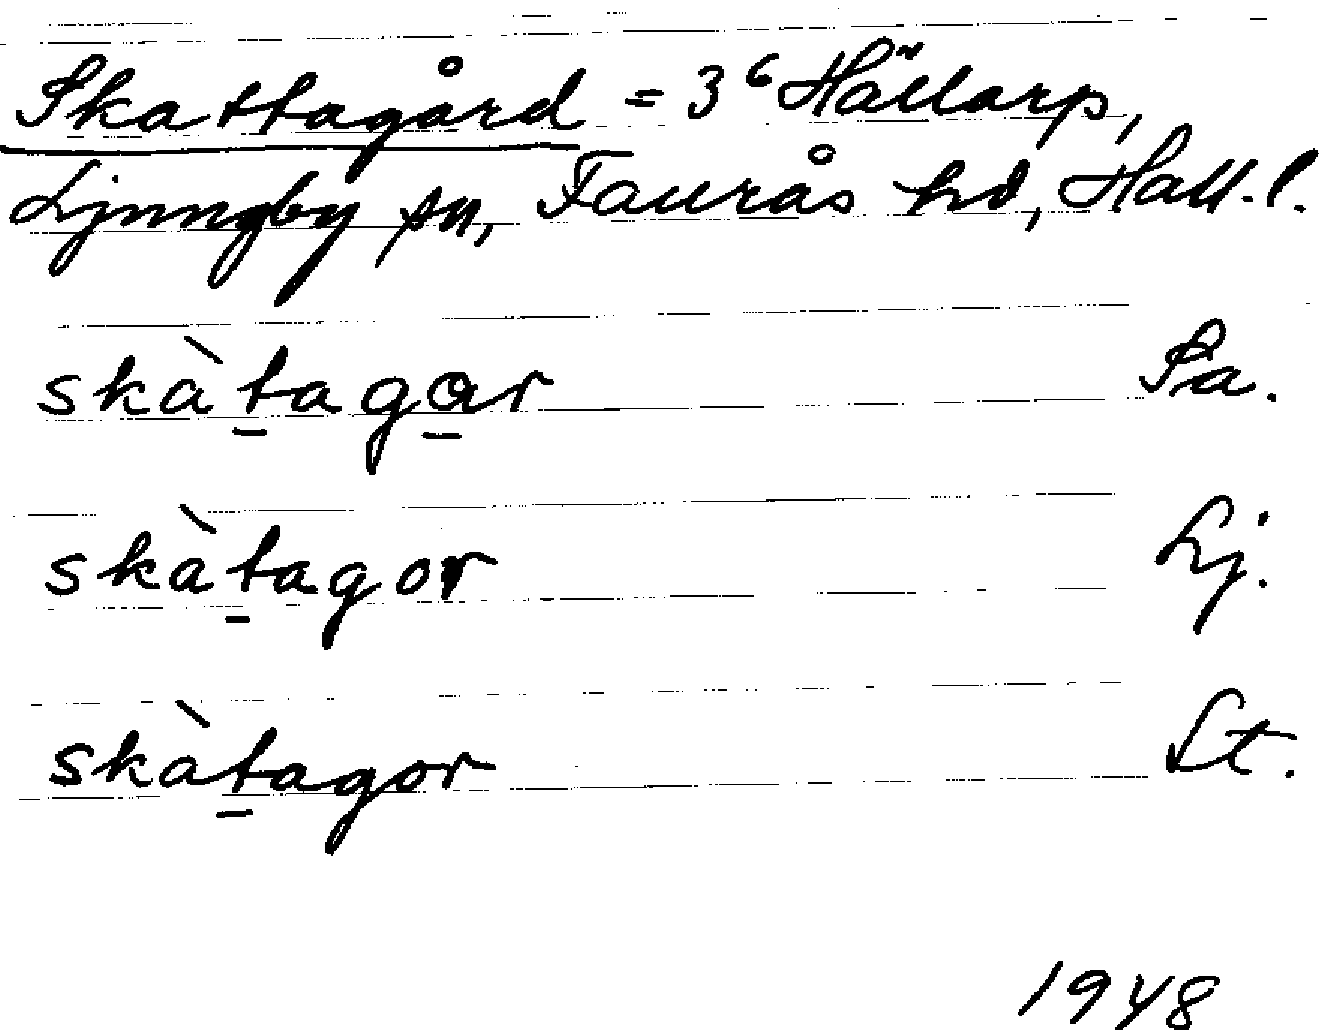 Skattagård = 3⁶ Hällarp,
Ljungby sn, Faurås hd, Hall. l.
skàtagar Sa.
skàtagor Lj.
skàtagor St.
1948